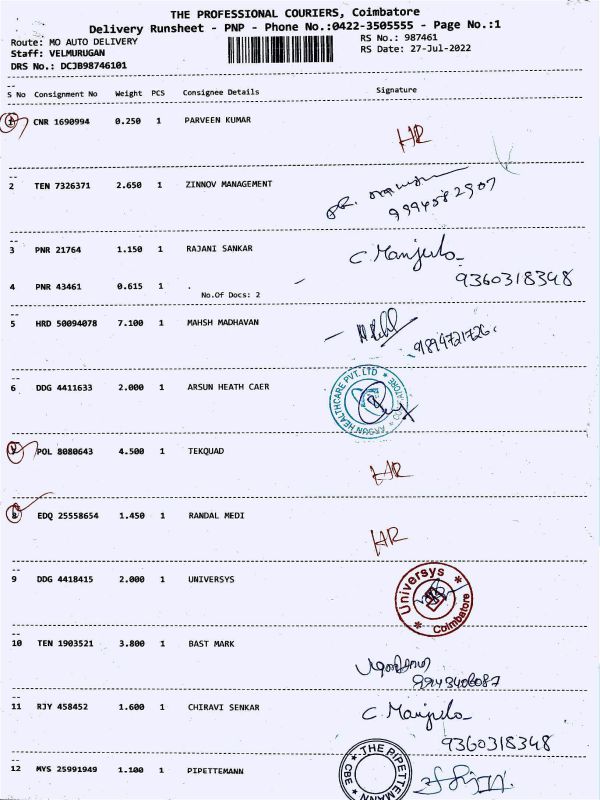 THE PROFESSIONAL COURIERS, Coimbatore
Delivery Runsheet - PNP - Phone No.:0422-3505555 - Page No.:1
Route: MO AUTO DELIVERY RS No.: 987461
Staff: VELMURUGAN RS Date: 27-Jul-2022
DRS No.: DCJB98746101
S No Consignment No Weight PCS Consignee Details Signature
1 CNR 1690994 0.250 1 PARVEEN KUMAR
HR
2 TEN 7326371 2.650 1 ZINNOV MANAGEMENT
9994582907
3 PNR 21764 1.150 1 RAJANI SANKAR C. Manjula
4 PNR 43461 0.615 1 . 9360318348
No.Of Docs: 2
5 HRD 50094078 7.100 1 MAHSH MADHAVAN
9894721726
6 DDG 4411633 2.000 1 ARSUN HEATH CAER
HEALTHCARE PVT. LTD
7 POL 8080643 4.500 1 TEKQUAD
HR
8 EDQ 25558654 1.450 1 RANDAL MEDI
HR
9 DDG 4418415 2.000 1 UNIVERSYS
Universys
Coimbatore
10 TEN 1903521 3.800 1 BAST MARK
9943406087
11 RJY 458452 1.600 1 CHIRAVI SENKAR C. Manjula
9360318348
12 MYS 25991949 1.100 1 PIPETTEMANN
THE PIPETTEMANN
CBE